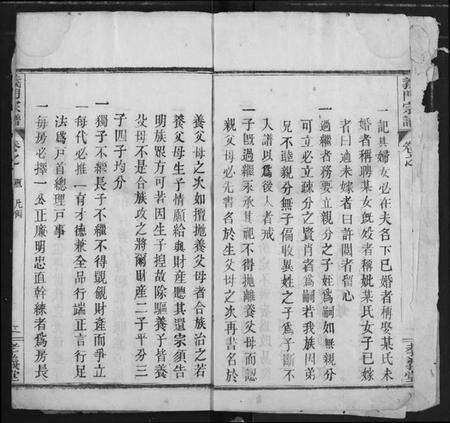 義門宗譜
一記其婦女必在夫名下已婚者稱娶某氏未
婚者稱聘某女旣歿者稱妣某氏女子已嫁
者曰適未嫁者曰許閱者留心
一過繼者務要立親分之子姪爲嗣如無親分
可立必立疎分之賢肖者爲嗣若我族因弟
兄不睦親分無子偏收異姓之子爲子斷不
入譜以爲後人者戒
一子旣過繼永承其祀不得拋離養父母而認
親父母必先書名於生父母之次再書名於
孝義堂
養父母之次如擅拋養父母者合族治之若
養父母生子情願給與財産聽其還宗須告
明族眾方可若因生子捏故除驅養子皆養
父母不是合族攻之將爾財産二子平分三
子四子均分
一獨子不繼長子不繼不得覬覦財産而爭立
一每代必推一育才德兼全品行端正言行足
法爲戸首總理戸事
一每房必擇一公正廉明忠直幹練者爲房長
義門宗譜
卷之
孝義堂